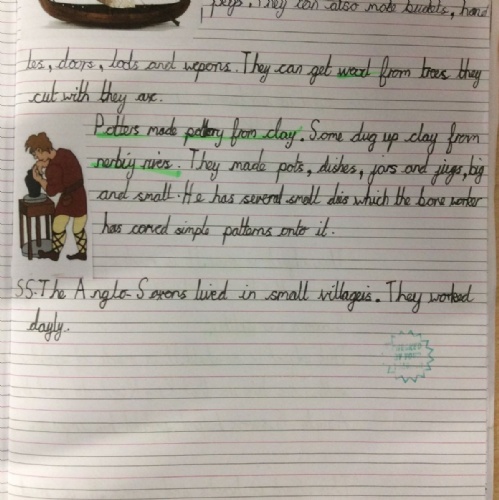 pegs. They can also make buckets, hand
les, doors, lods and wepons. They can get wood from trees they
cut with they axe.
Potters made pottery from clay. Some dug up clay from
nerbiy rivers. They made pots, dishes, jars and jugs, big
and small. He has several small dies which the bone worker
has carved simple patterns onto it.
SS.The Anglo-Saxons lived in small villageis. They worked
dayly.